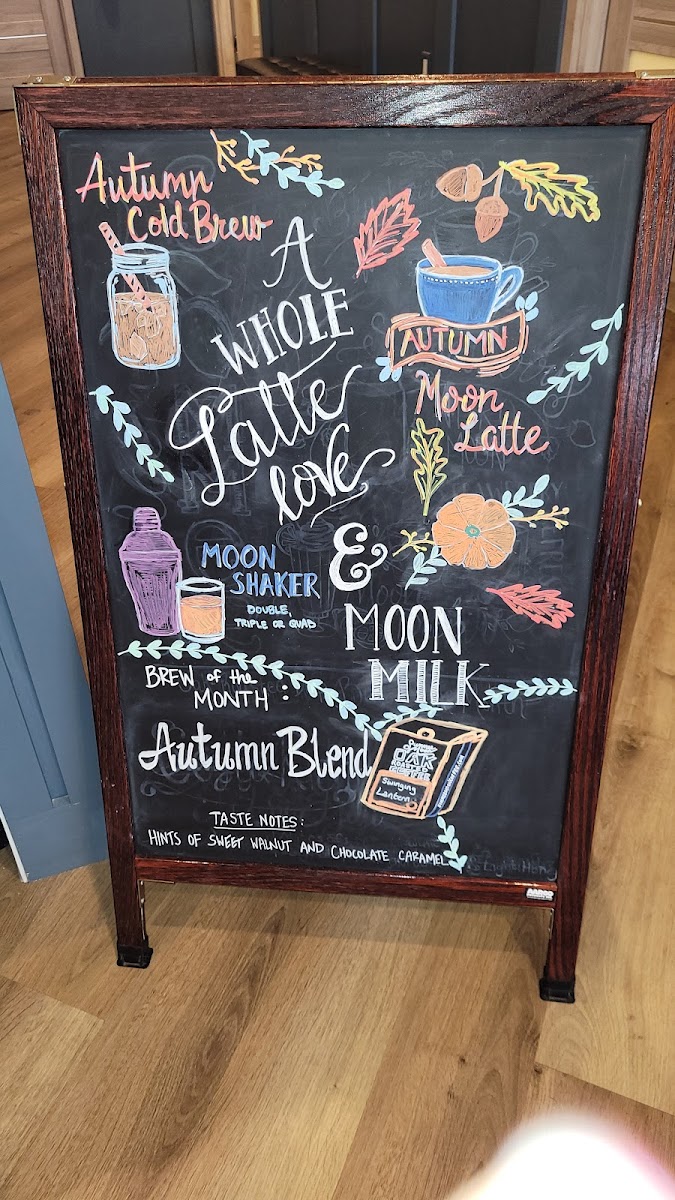 Autumn
Cold Brew
A
WHOLE
Latte
love
&
MOON
MILK
AUTUMN
Moon
Latte
MOON
SHAKER
DOUBLE,
TRIPLE OR QUAD
BREW of the
MONTH:
Autumn Blend
OAK
ROASTED
COFFEE
Swinging
Lantern
TASTE NOTES:
HINTS OF SWEET WALNUT AND CHOCOLATE CARAMEL
AARCO